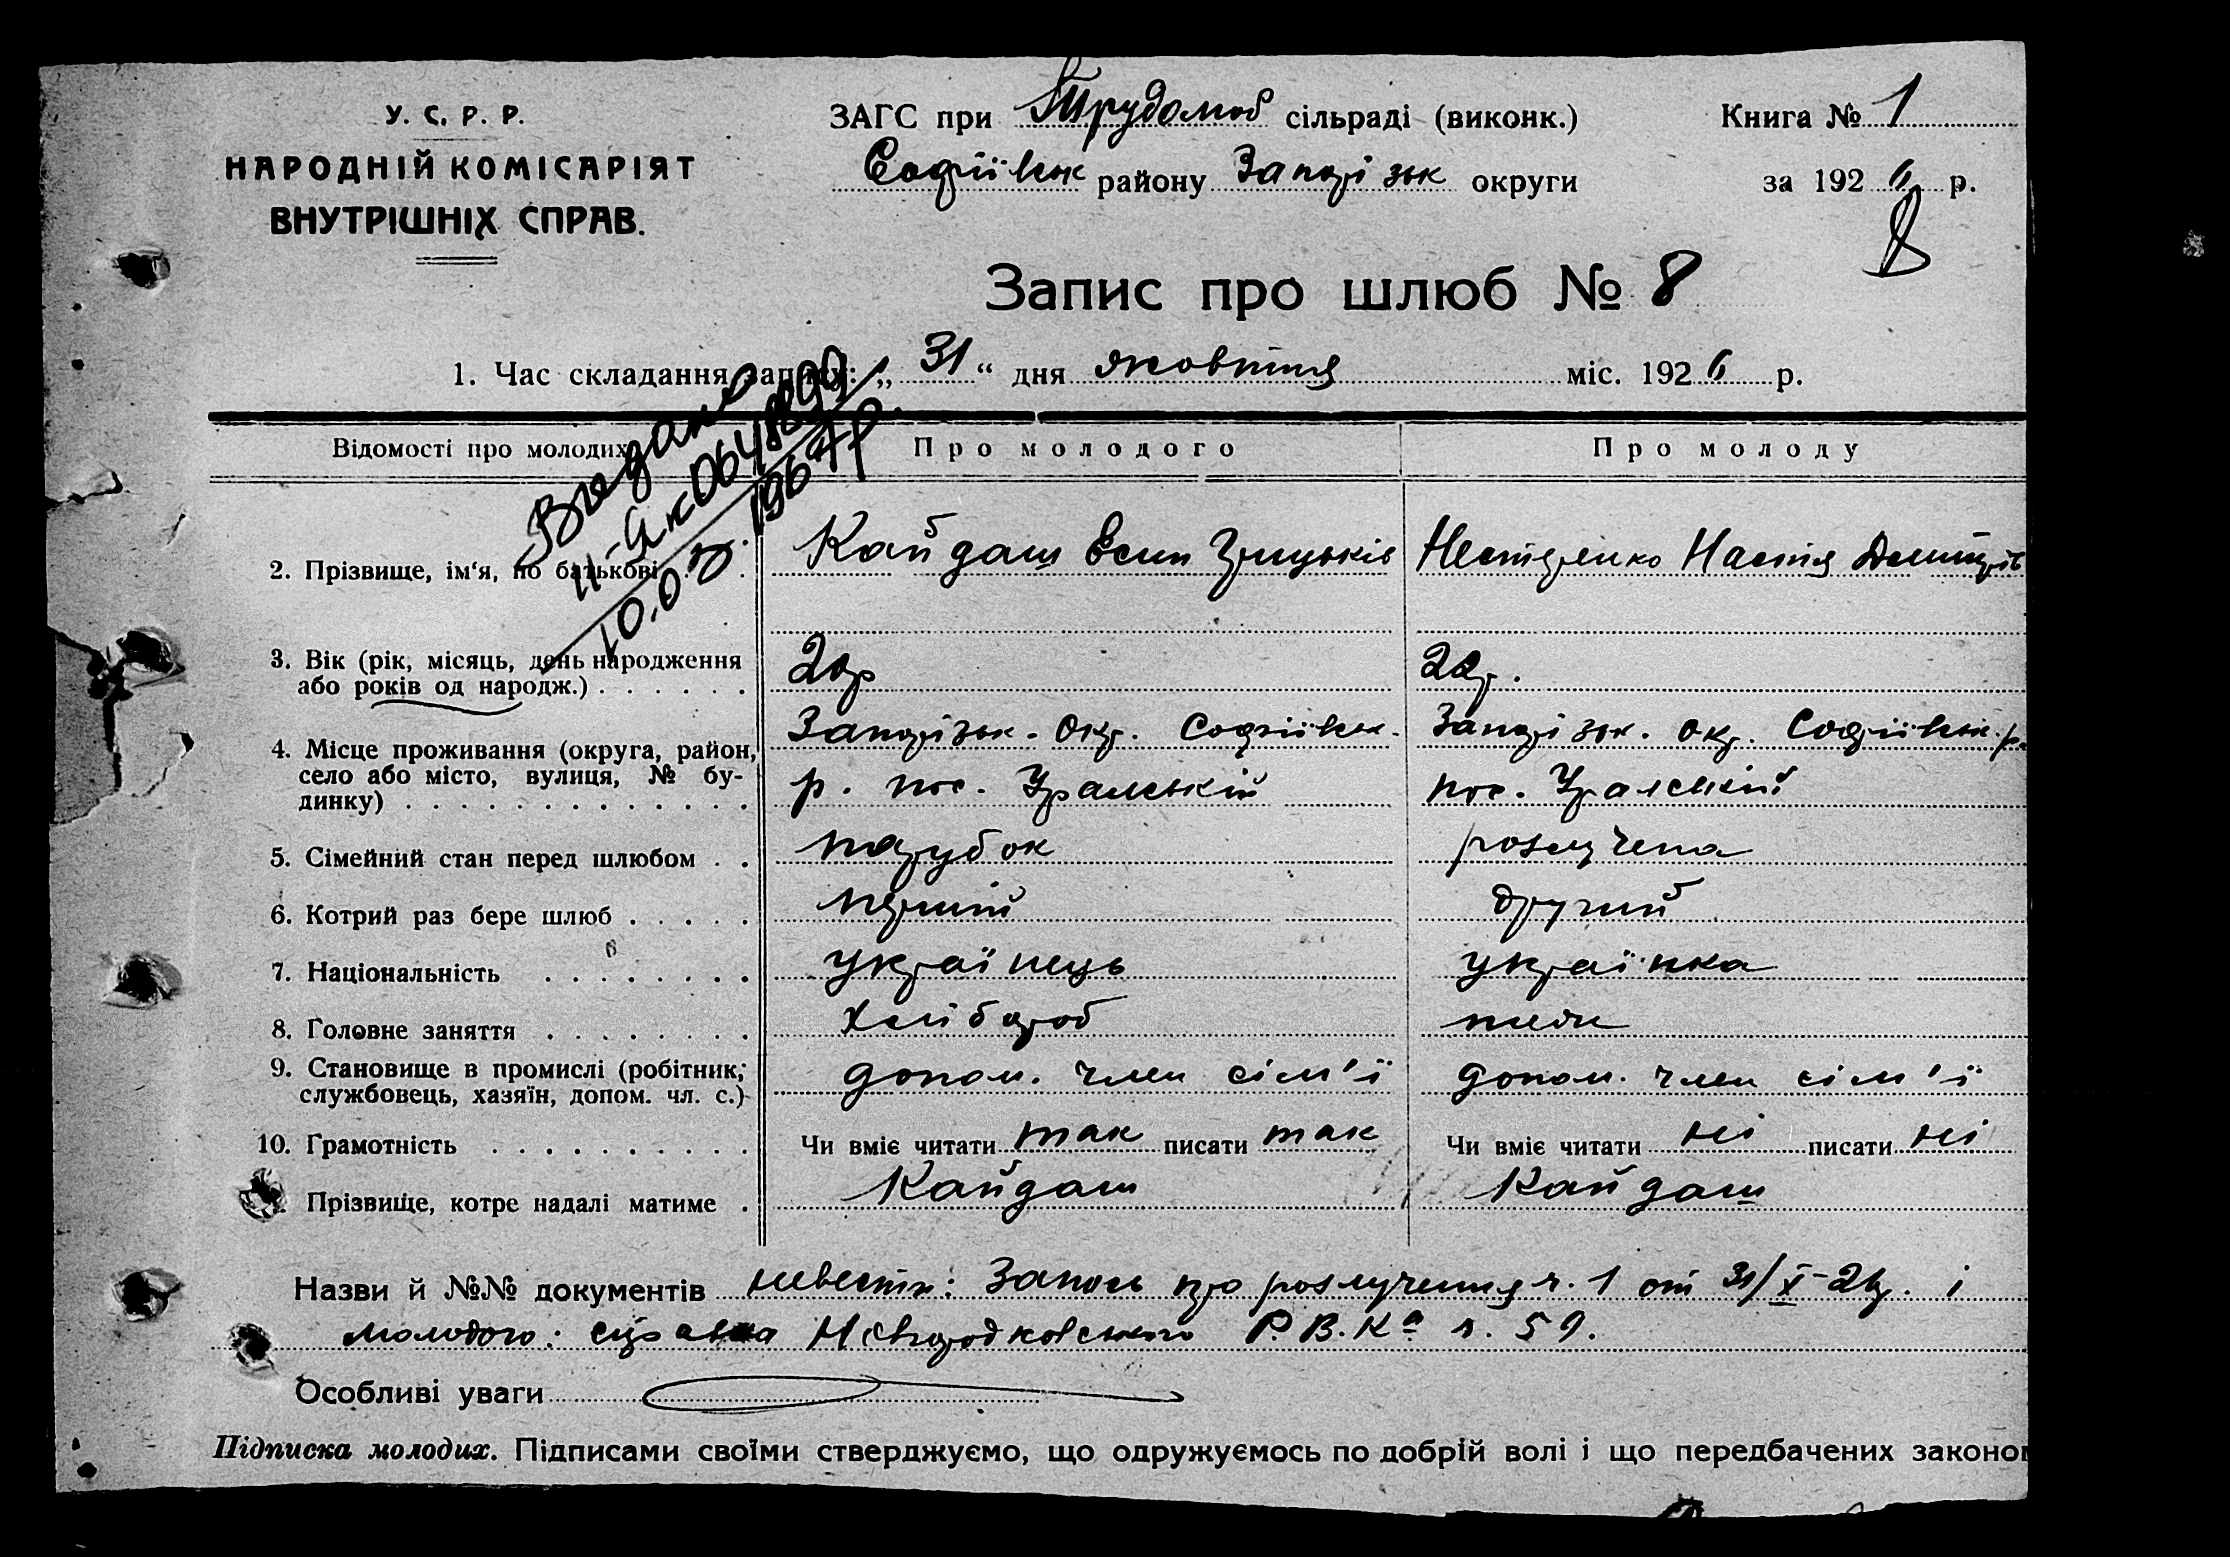 У. С. Р. Р.
НАРОДНІЙ КОМІСАРІЯТ
ВНУТРІШНІХ СПРАВ.
ЗАГС при Трудолюб сільраді (виконк.)
Софіївськ району Запорізьк округи
Книга № 1
за 192 6 р.
8
Запис про шлюб № 8
1. Час складання запису: „ 31 “ дня жовтня міс. 192 6 р.
Відомості про молодих
Про молодого
Про молоду
2. Прізвище, ім‘я, по батькові
Кайдаш Єсип Грицьків
Нестеренко Настя Дмитрів
3. Вік (рік, місяць, день народження
або років од народж.)
22р.
4. Місце проживання (округа, район,
село або місто, вулиця, № бу-
динку)
Запорізьк. Окр. Софіївськ.
р. пос. Уральській
Запорізьк. Окр. Софіївськ. р.
пос. Уральській
5. Сімейний стан перед шлюбом
парубок
розлучена
6. Котрий раз бере шлюб
перший
другий
7. Національність
українець
українка
8. Головне заняття
Хлібороб
9. Становище в промислі (робітник,
службовець, хазяїн, допом. чл. с.)
допом. член сім'ї
допом. член сім'ї
10. Грамотність
Чи вміє читати так писати так
Чи вміє читати ні писати ні
Прізвище, котре надалі матиме
Кайдаш
Кайдаш
Назви й №№ документів невести: Запись про розлучення ч. 1 от 31/X-26р. і
молодого: справка Р.В.Ка 59.
Особливі уваги
Підписка молодих. Підписами своїми стверджуємо, що одружуємось по добрій волі і що передбачених законом